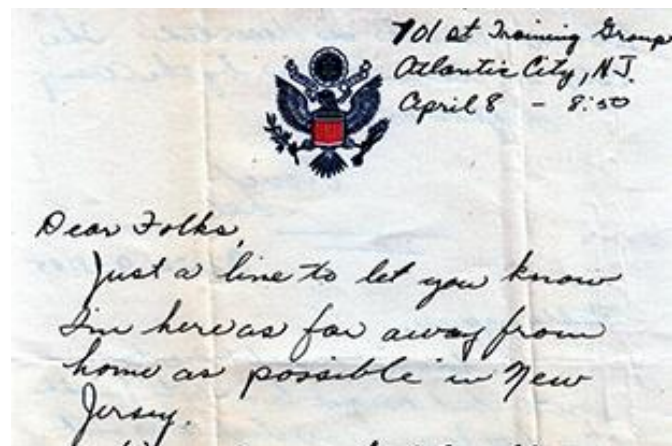 701st Training Group
Atlantic City, N.J.
April 8 - 8:50
Dear Folks,
Just a line to let you know
I'm here as far away from
home as possible in New
Jersey.